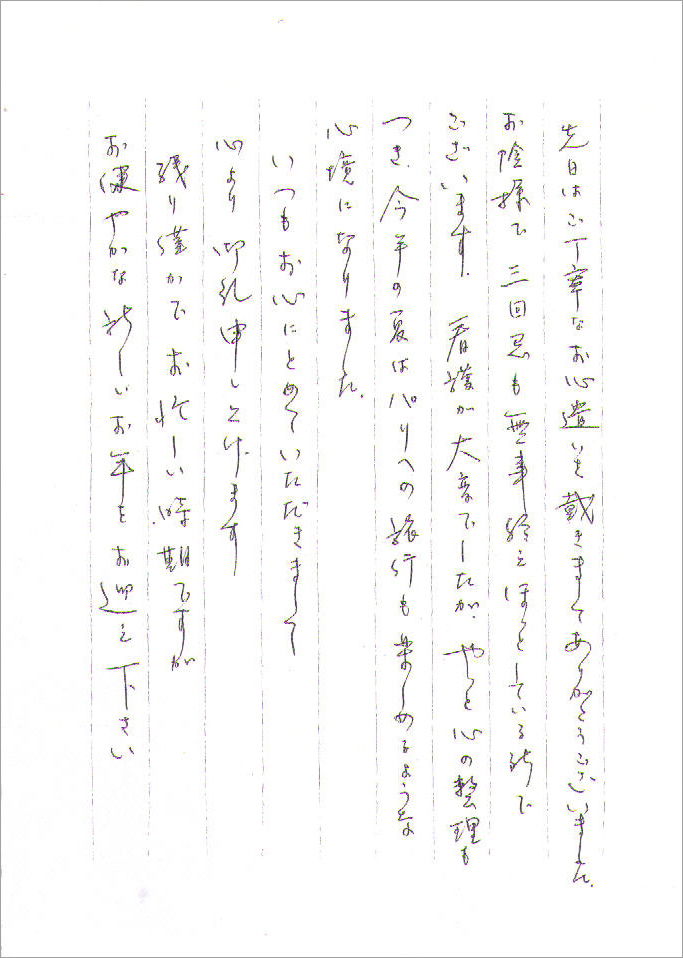 先日はご丁寧なお心遣いを戴きましてありがとうございました。
お陰様で三回忌も無事終えほっとしている所で
ございます。看護が大変でしたが、やっと心の整理も
つき、今年の夏はパリへの旅行も楽しめるような
心境になりました。
いつもお心にとめていただきまして
心より御礼申し上げます
残り僅かでお忙しい時期ですが
お健やかな新しいお年をお迎え下さい